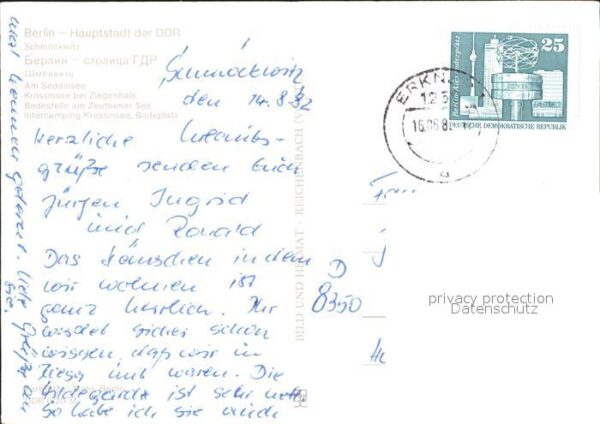 Berlin – Hauptstadt der DDR
Schmöckwitz
Берлин – столица ГДР
Шмёквитц
Am Seddinsee
Krossinsee bei Ziegenhals
Badestelle am Zeuthener See
Intercamping Krossinsee, Badeplatz
Schmöckwitz
den 14.8.82
Herzliche Urlaubs-
grüße senden Euch
Jürgen Ingrid
und Ronald
Das Häuschen in dem
wir wohnen ist
ganz herrlich. Ihr
werdet sicher schon
wissen, daß wir in
Riesa mit waren. Die
Hildegard ist sehr nett
So habe ich sie auch
mal kennen gelernt. Liebe Grüße an
Sie.
BILD UND HEIMAT · REICHENBACH (V
25
Berlin-Alexanderplatz
DEUTSCHE DEMOKRATISCHE REPUBLIK
ERKN
125
16.08.8
a
Fam
D
8350
privacy protection
Datenschutz